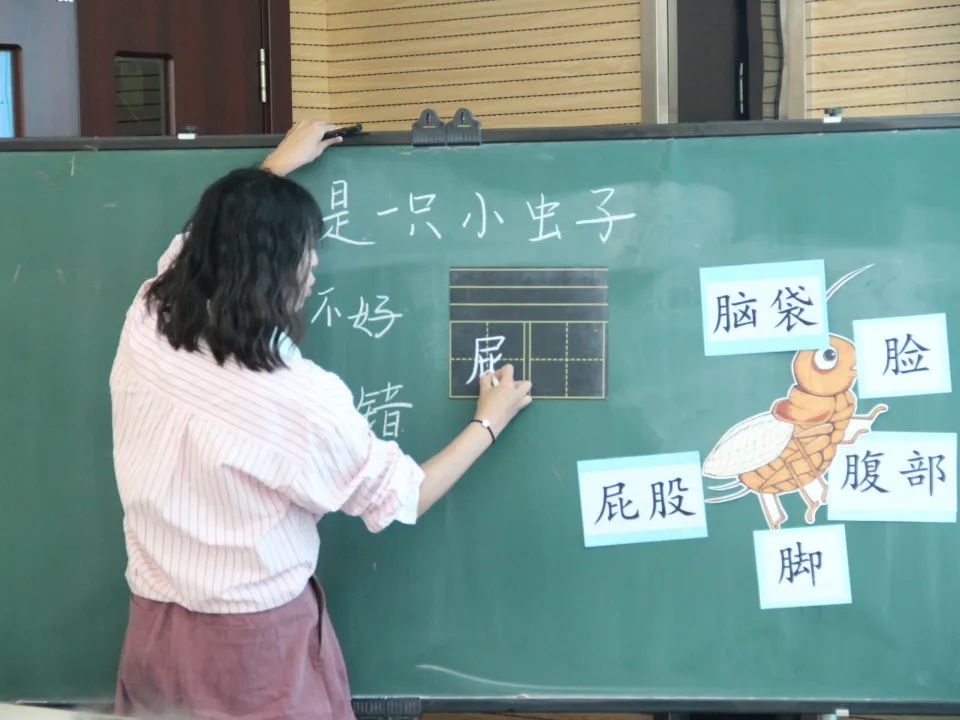 是一只小虫子
不好
错
屁
脑袋
脸
腹部
屁股
脚